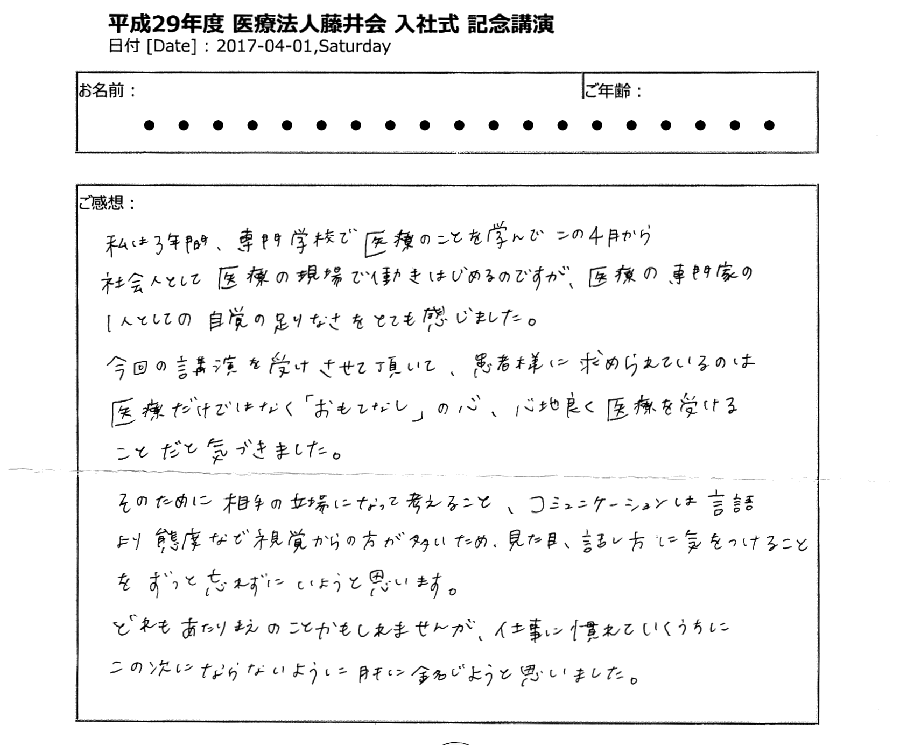 平成29年度 医療法人藤井会 入社式 記念講演
日付 [Date] : 2017-04-01,Saturday
お名前：
ご年齢：
ご感想：
私は3年間、専門学校で医療のことを学んでこの4月から
社会人として医療の現場で働きはじめるのですが、医療の専門家の
1人としての自覚の足りなさをとても感じました。
今回の講演を受けさせて頂いて、患者様に求められているのは
医療だけではなく「おもてなし」の心、心地良く医療を受ける
ことだと気づきました。
そのために相手の立場になって考えること、コミュニケーションは言語
より態度など視覚からの方が多いため、見た目、話し方に気をつけること
をずっと忘れずにいようと思います。
どれもあたりまえのことかもしれませんが、仕事に慣れていくうちに
この次にならないように肝に銘じようと思いました。